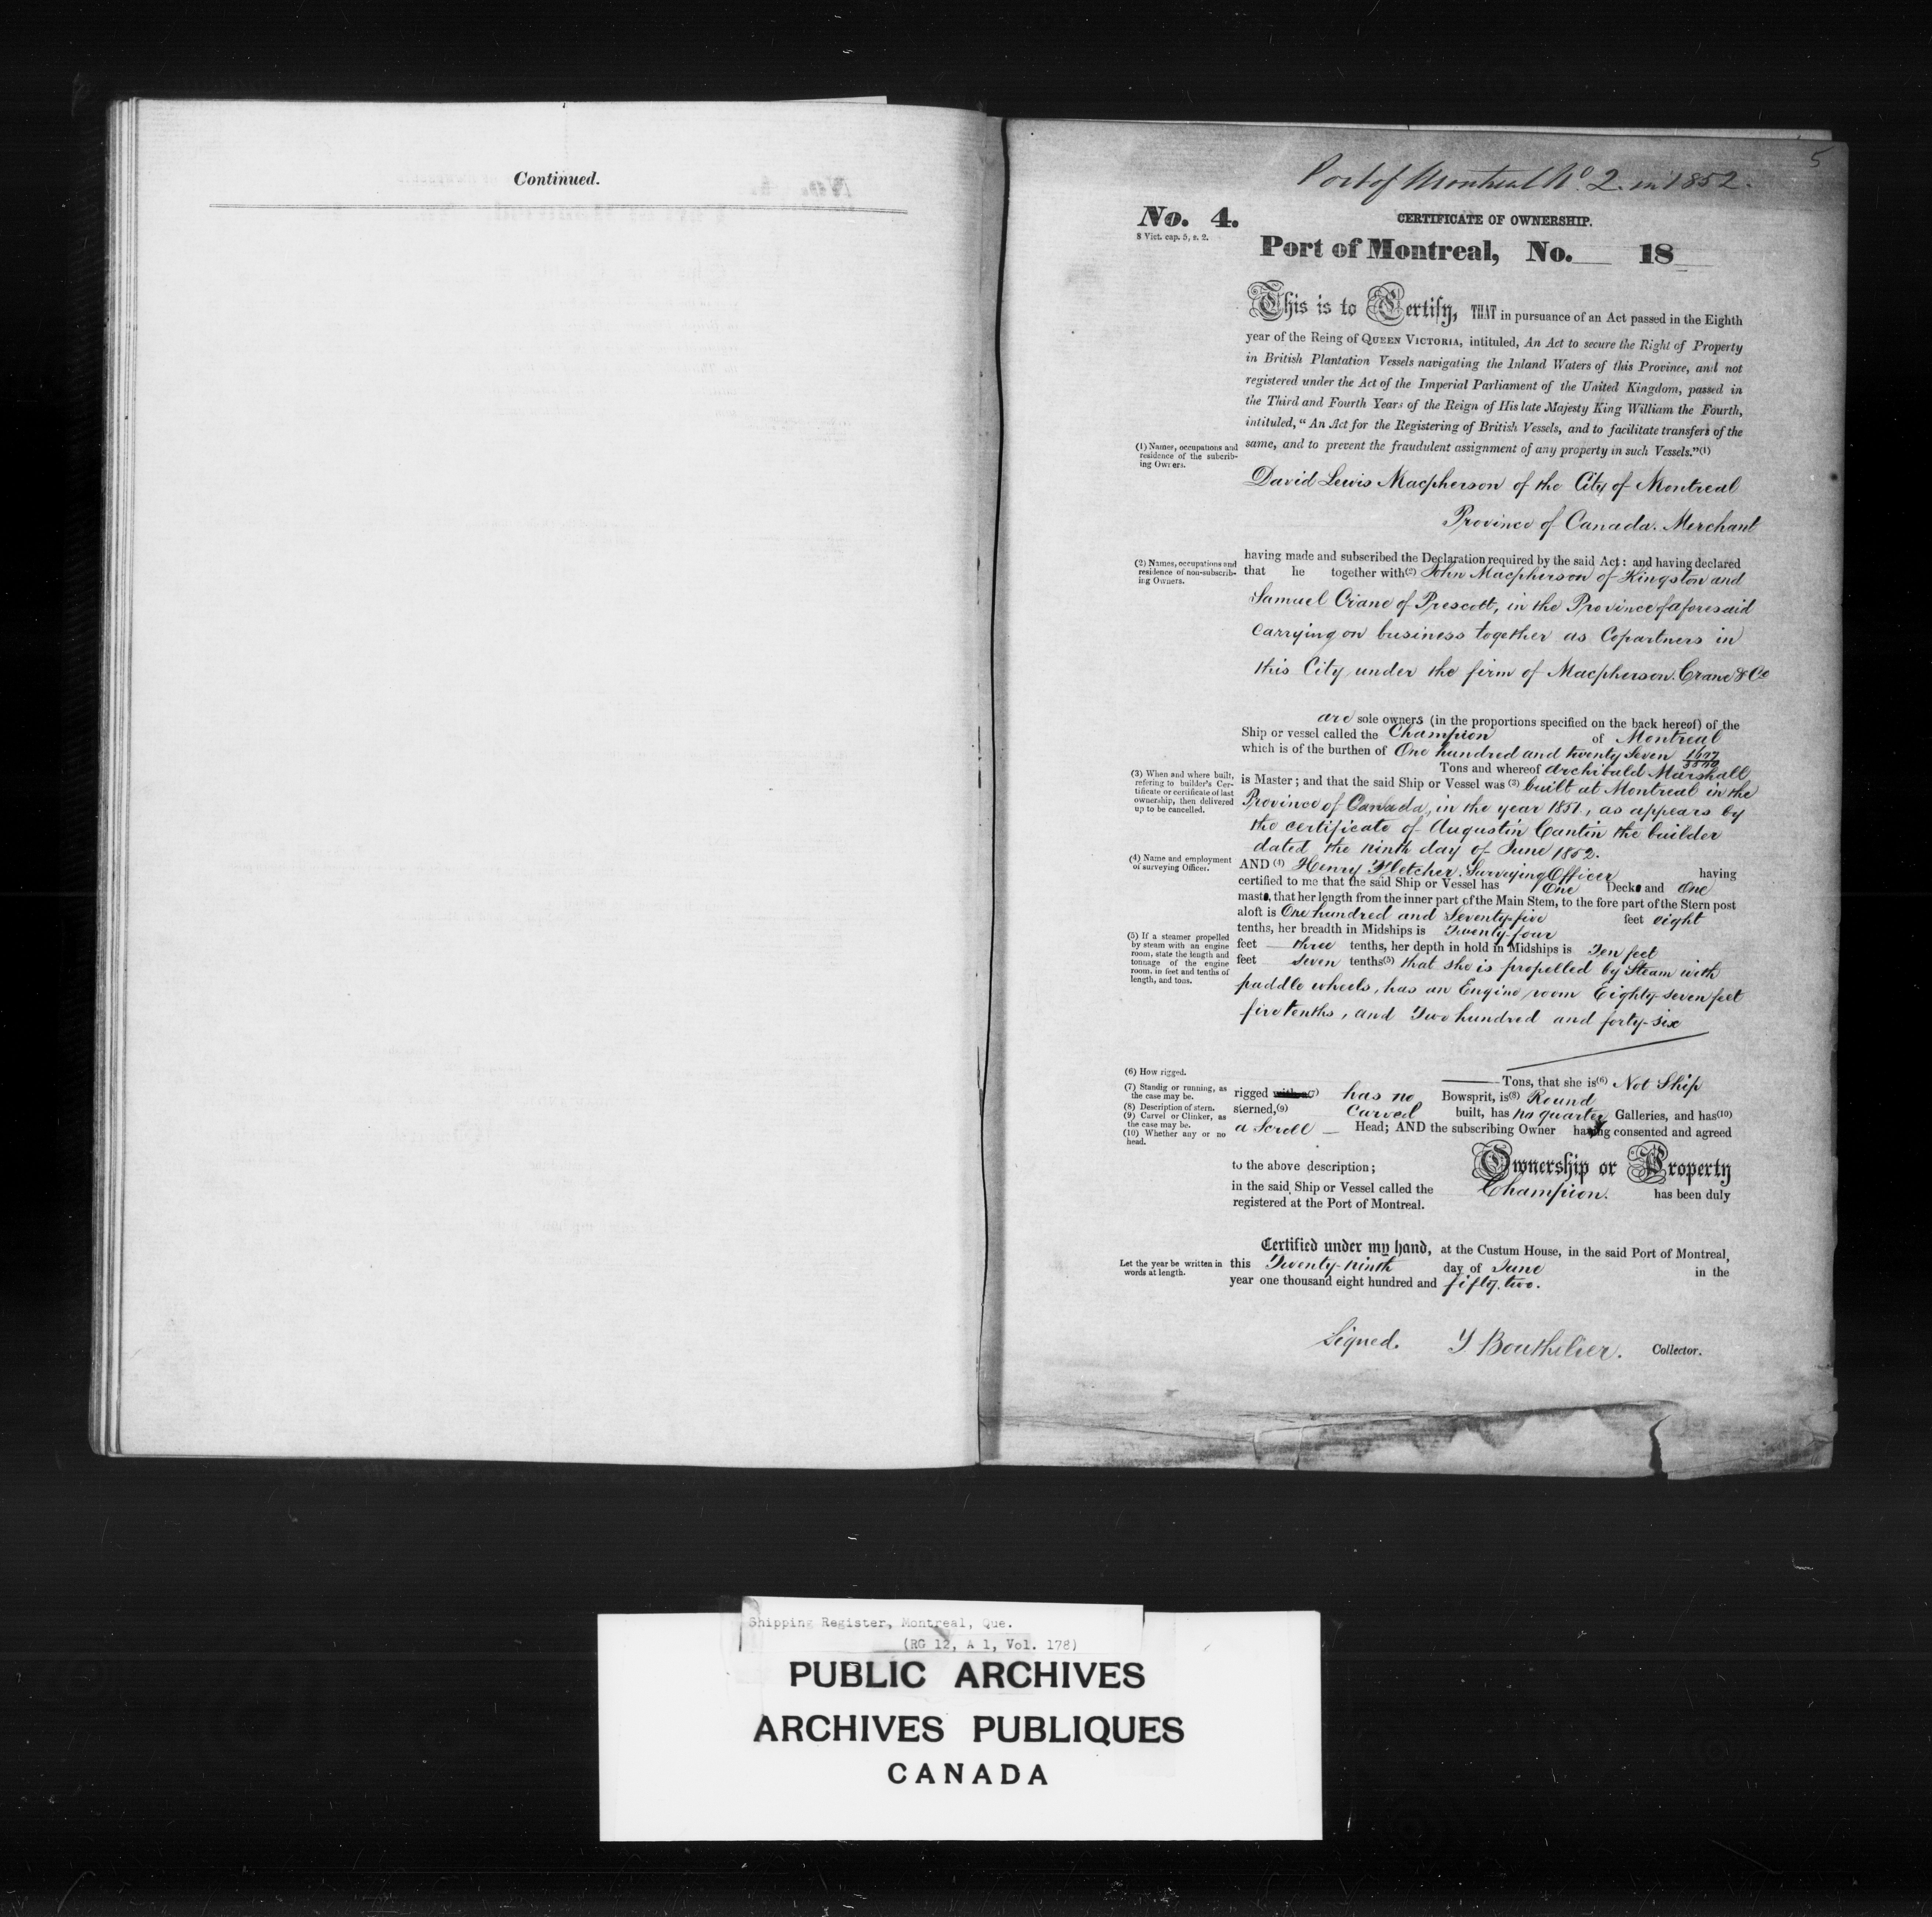 Continued.
5
Port of Montreal No. 2. in 1852.
No. 4.
8 Vict. cap. 5, s. 2.
CERTIFICATE OF OWNERSHIP.
Port of Montreal, No. 18
This is to Certify, THAT in pursuance of an Act passed in the Eighth
year of the Reing of QUEEN VICTORIA, intituled, An Act to secure the Right of Property
in British Plantation Vessels navigating the Inland Waters of this Province, and not
registered under the Act of the Imperial Parliament of the United Kingdom, passed in
the Third and Fourth Years of the Reign of His late Majesty King William the Fourth,
intituled, "An Act for the Registering of British Vessels, and to facilitate transfers of the
same, and to prevent the fraudulent assignment of any property in such Vessels."(1)
(1) Names, occupations and
residence of the subcrib-
ing Owners.
David Lewis Macpherson of the City of Montreal
Province of Canada. Merchant
having made and subscribed the Declaration required by the said Act: and having declared
(2) Names, occupations and
residence of non-subscrib-
ing Owners.
that he together with(2) John Macpherson of Kingston and
Samuel Crane of Prescott, in the Province of aforesaid
carrying on business together as Copartners in
this City under the firm of Macpherson. Crane & Co
are sole owners (in the proportions specified on the back hereof) of the
Ship or vessel called the Champion of Montreal
which is of the burthen of One hundred and twenty Seven
Tons and whereof Archibald Marshall
(3) When and where built,
refering to builder's Cer-
tificate or certificate of last
ownership, then delivered
up to be cancelled.
is Master; and that the said Ship or Vessel was (3) built at Montreal in the
Province of Canada, in the year 1851, as appears by
the certificate of Augustin Cantin the builder
dated the ninth day of June 1852.
(4) Name and employment
of surveying Officer.
AND (4) Henry Fletcher. Surveying Officer having
certified to me that the said Ship or Vessel has One Decks and One
masts, that her length from the inner part of the Main Stem, to the fore part of the Stern post
aloft is One hundred and Seventy-five feet eight
tenths, her breadth in Midships is Twenty-four
(5) If a steamer propelled
by steam with an engine
room, state the length and
tonnage of the engine
room, in feet and tenths of
length, and tons.
feet three tenths, her depth in hold in Midships is Ten feet
feet seven tenths(5) that she is propelled by Steam with
paddle wheels, has an Engine room Eighty-seven feet
five tenths, and Two hundred and forty-six
(6) How rigged.
Tons, that she is(6) Not Ship
(7) Standig or running, as
the case may be.
rigged with a(7) has no Bowsprit, is(8) Round
(8) Description of stern.
(9) Carvel or Clinker, as
the case may be.
sterned,(9) Carvel built, has no quarter Galleries, and has(10)
(10) Whether any or no
head.
a Scroll Head; AND the subscribing Owner having consented and agreed
to the above description; Ownership or Property
in the said Ship or Vessel called the Champion. has been duly
registered at the Port of Montreal.
Certified under my hand, at the Custum House, in the said Port of Montreal,
Let the year be written in
words at length.
this Twenty-ninth day of June in the
year one thousand eight hundred and fifty two.
Signed. Y Bouthilier. Collector.
Shipping Register, Montreal, Que.
(RG 12, A 1, Vol. 178)
PUBLIC ARCHIVES
ARCHIVES PUBLIQUES
CANADA